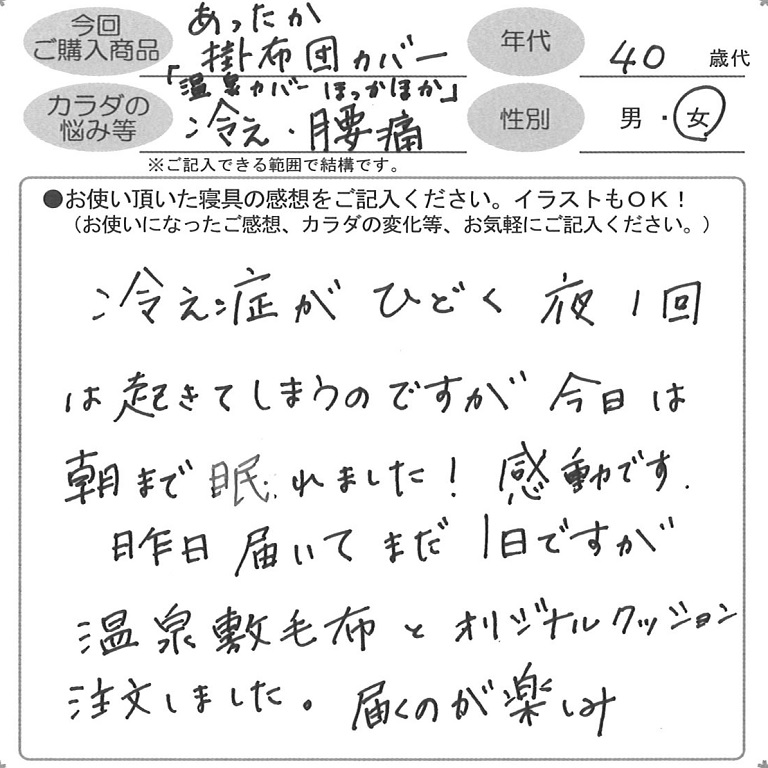 今回
ご購入商品
あったか
掛布団カバー
「温泉カバーほっかほか」
年代
40 歳代
カラダの
悩み等
冷え・腰痛
性別
男・女
※ご記入できる範囲で結構です。
●お使い頂いた寝具の感想をご記入ください。イラストもOK！
（お使いになったご感想、カラダの変化等、お気軽にご記入ください。）
冷え症が ひどく 夜1回
は起きてしまうのですが 今日は
朝まで眠れました！ 感動です.
昨日届いてまだ1日ですが
温泉敷毛布とオリジナルクッション
注文しました。届くのが楽しみ